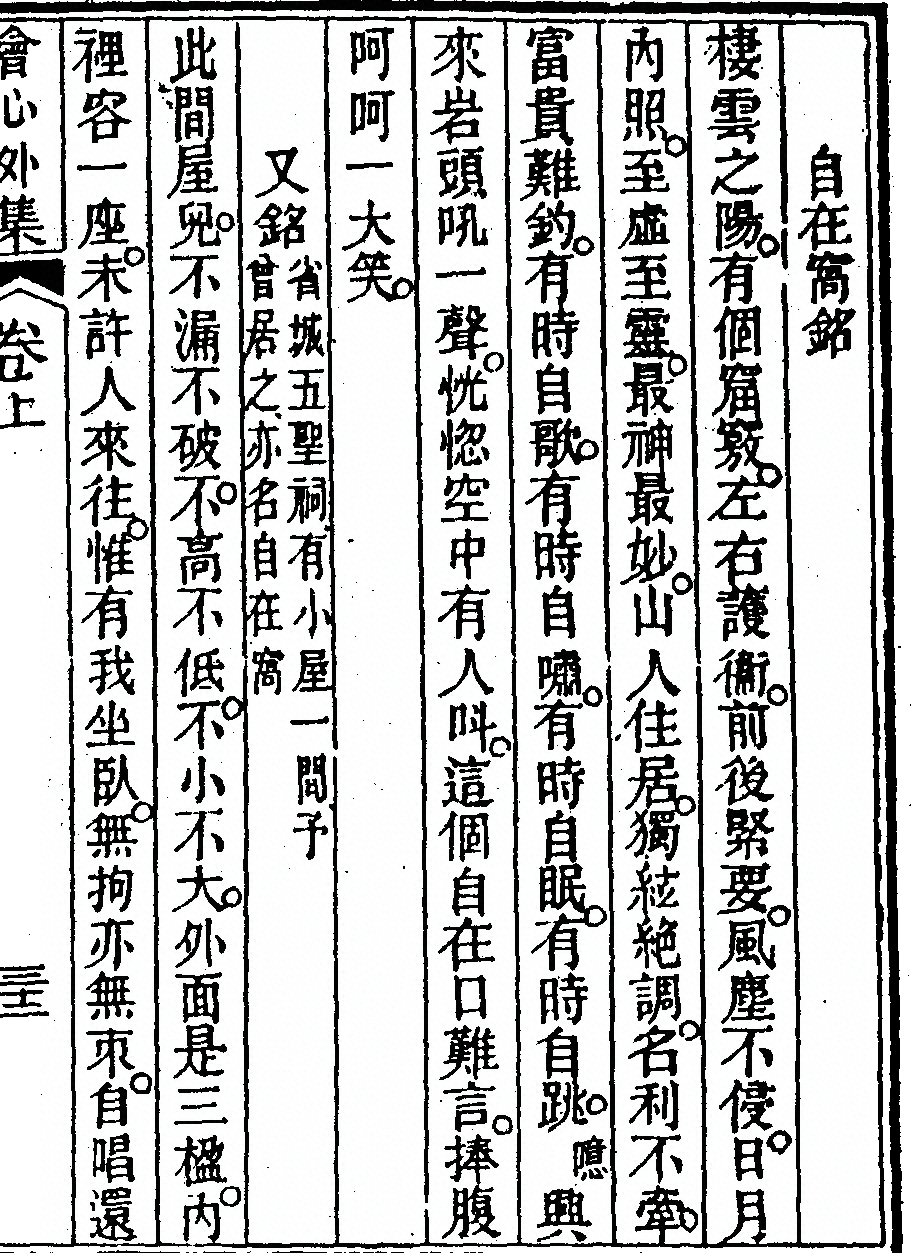 自在窩銘
棲雲之陽。有個窟竅。左右護衞。前後緊要。風塵不侵。日月
內照。至虛至靈。最神最妙。山人住居。獨絃絶調。名利不牽。
富貴難釣。有時自歌。有時自嘯。有時自眠。有時自跳。噫興
來岩頭吼一聲。恍惚空中有人呌。這個自在口難言。捧腹
呵呵一大笑。
又銘
省城五聖祠有小屋一間予
曾居之亦名自在窩
此間屋兒。不漏不破。不高不低。不小不大。外面是三楹。內
裡容一座。未許人來往。惟有我坐臥。無拘亦無束。自唱還
會心外集
卷上
三十三